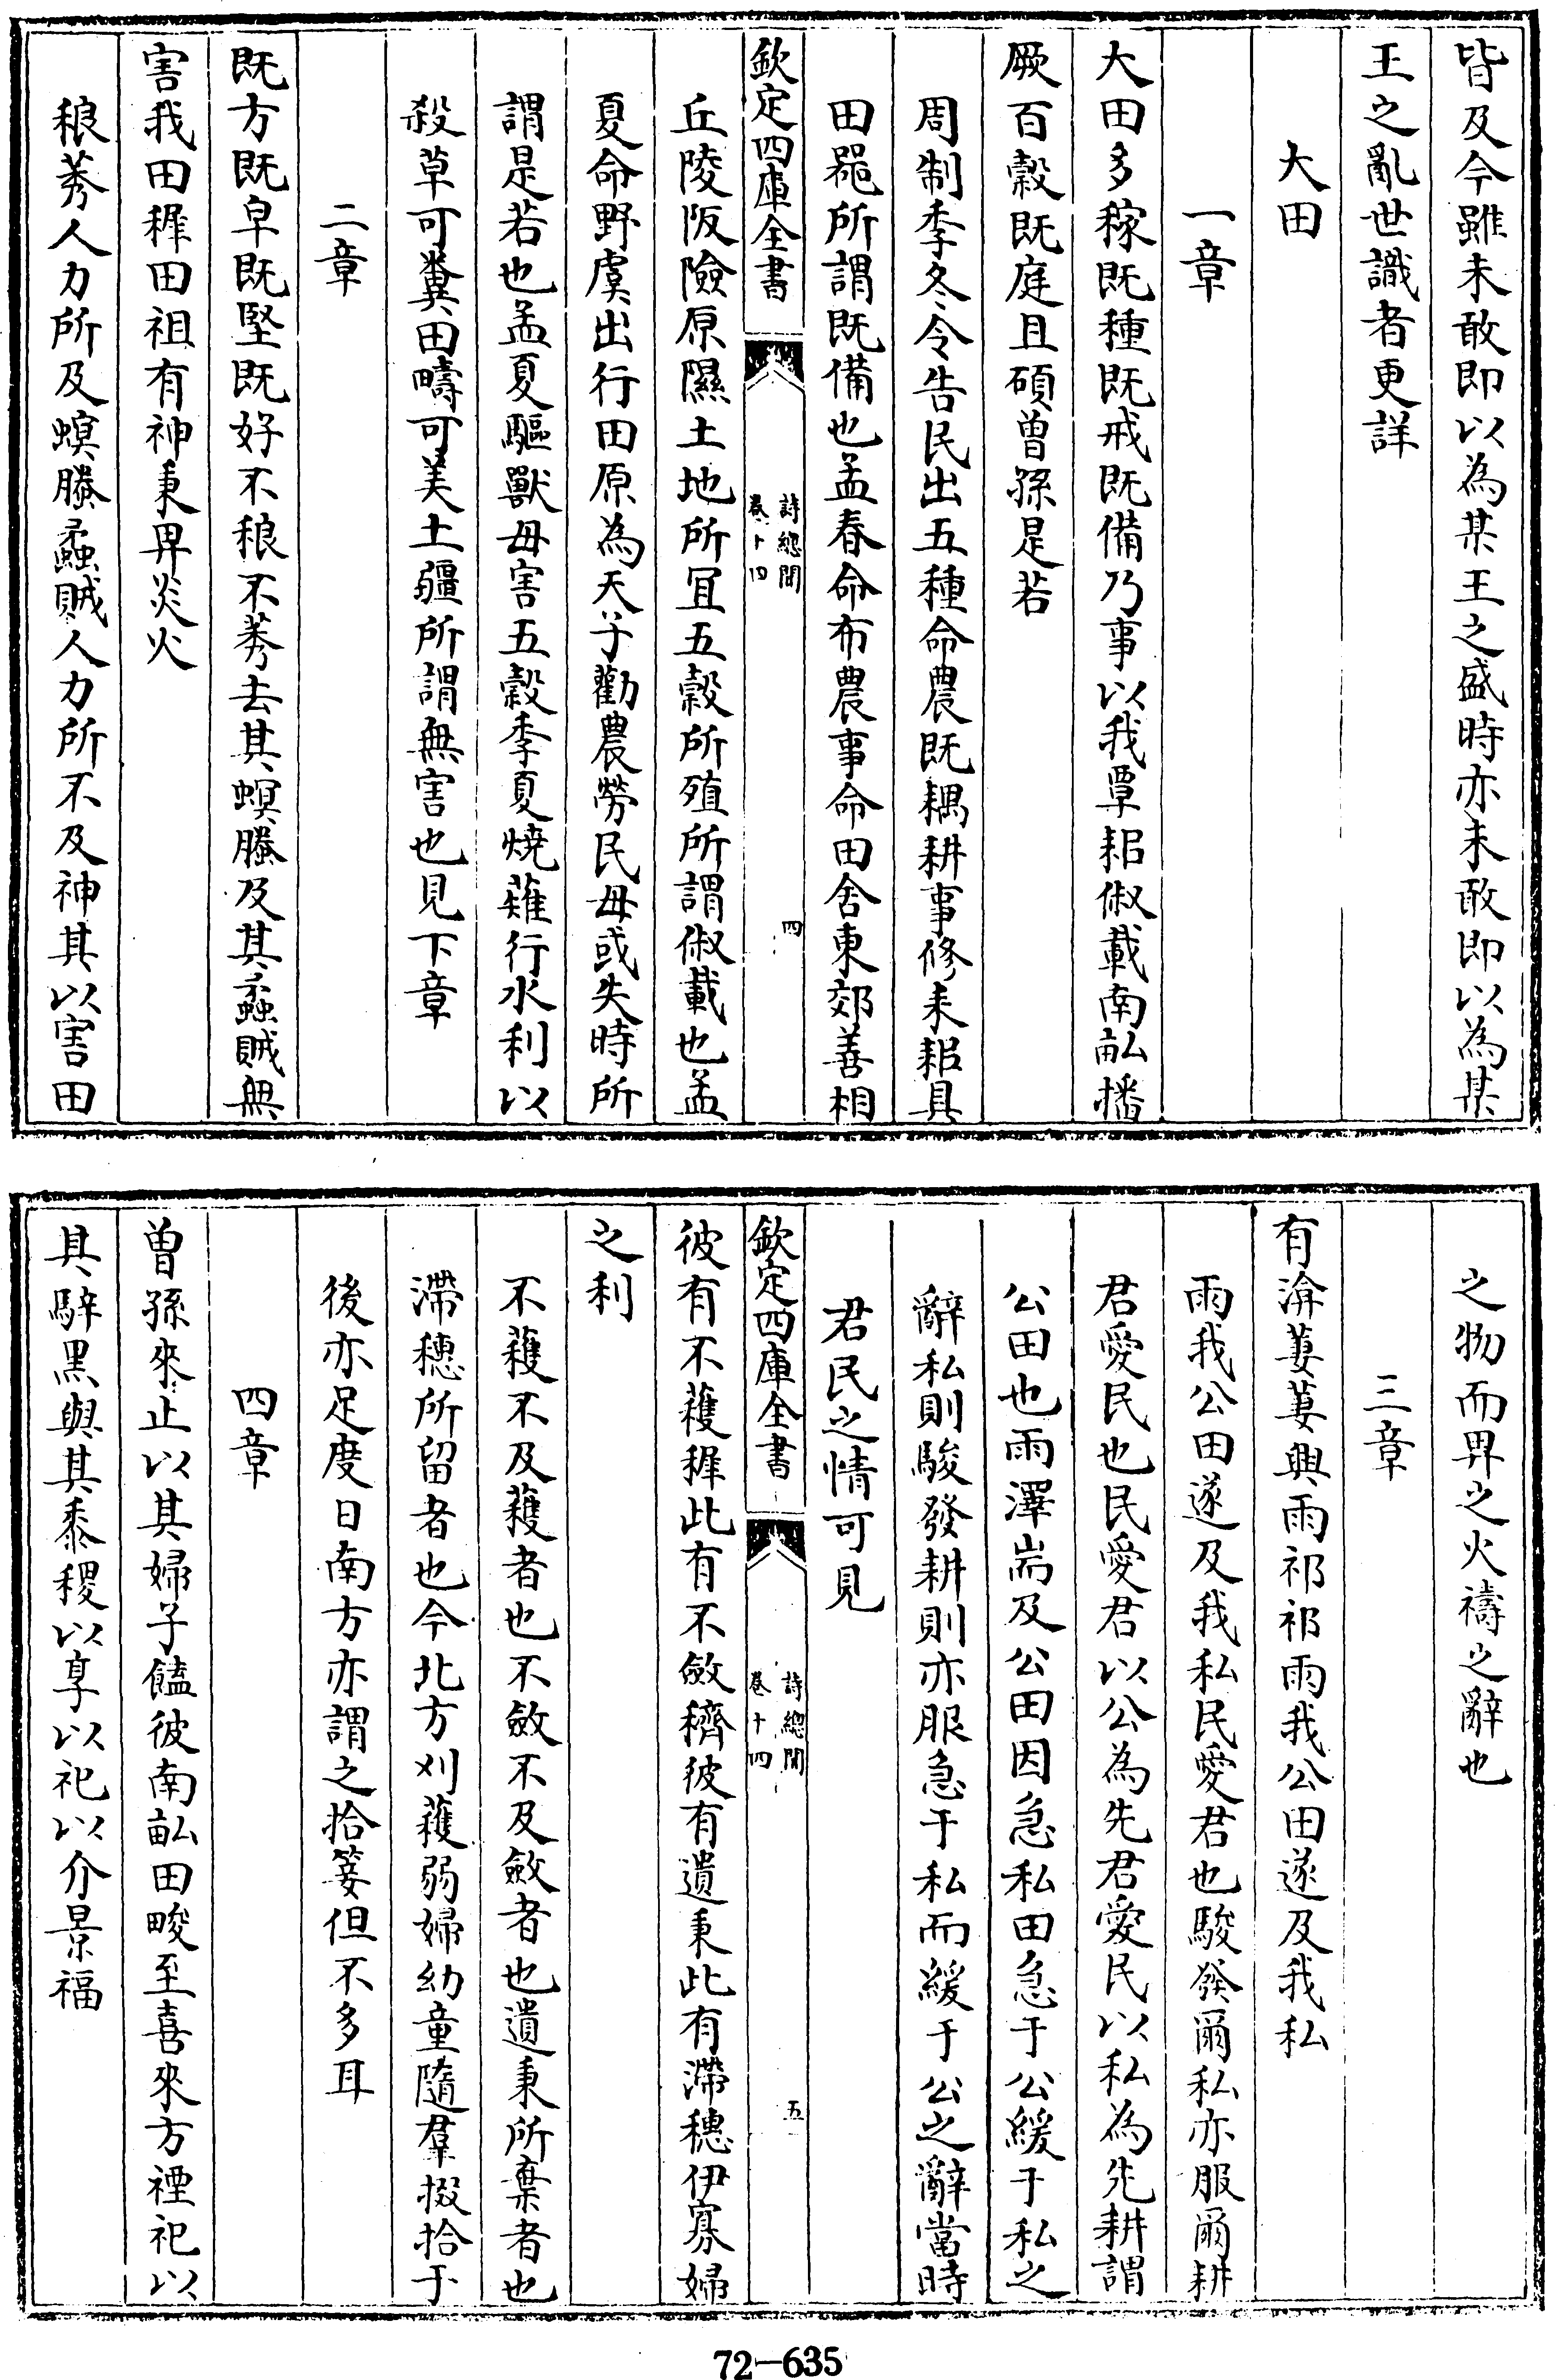 皆及今雖未敢即以為某王之盛時亦未敢即以為某
王之亂世識者更詳
大田
一章
大田多稼既種既戒既備乃事以我覃耜俶載南畝播
厥百穀既庭且碩曾孫是若
周制季冬令告民出五種命農既耦耕事修耒耜具
田器所謂既備也孟春命布農事命田舍東郊善相
欽定四庫全書
詩總聞
卷十四
四
丘陵阪險原隰土地所宜五穀所殖所謂俶載也孟
夏命野虞出行田原為天子勸農勞民毋或失時所
謂是若也孟夏驅獸毋害五穀季夏燒薙行水利以
殺草可糞田疇可美土疆所謂無害也見下章
二章
既方既皁既堅既好不稂不莠去其螟螣及其蟊賊無
害我田穉田祖有神秉畀炎火
稂莠人力所及螟螣蟊賊人力所不及神其以害田
之物而畀之火禱之辭也
三章
有渰萋萋興雨祁祁雨我公田遂及我私
雨我公田遂及我私民愛君也駿發爾私亦服爾耕
君愛民也民愛君以公為先君愛民以私為先耕謂
公田也雨澤耑及公田因急私田急于公緩于私之
辭私則駿發耕則亦服急于私而緩于公之辭當時
君民之情可見
欽定四庫全書
詩總聞
卷十四
五
彼有不穫穉此有不斂穧彼有遺秉此有滯穗伊寡婦
之利
不穫不及穫者也不斂不及斂者也遺秉所棄者也
滯穗所留者也今北方刈穫弱婦幼童隨羣掇拾于
後亦足度日南方亦謂之拾䈉但不多耳
四章
曾孫來止以其婦子饁彼南畝田畯至喜來方禋祀以
其騂黑與其黍稷以享以祀以介景福
72-635